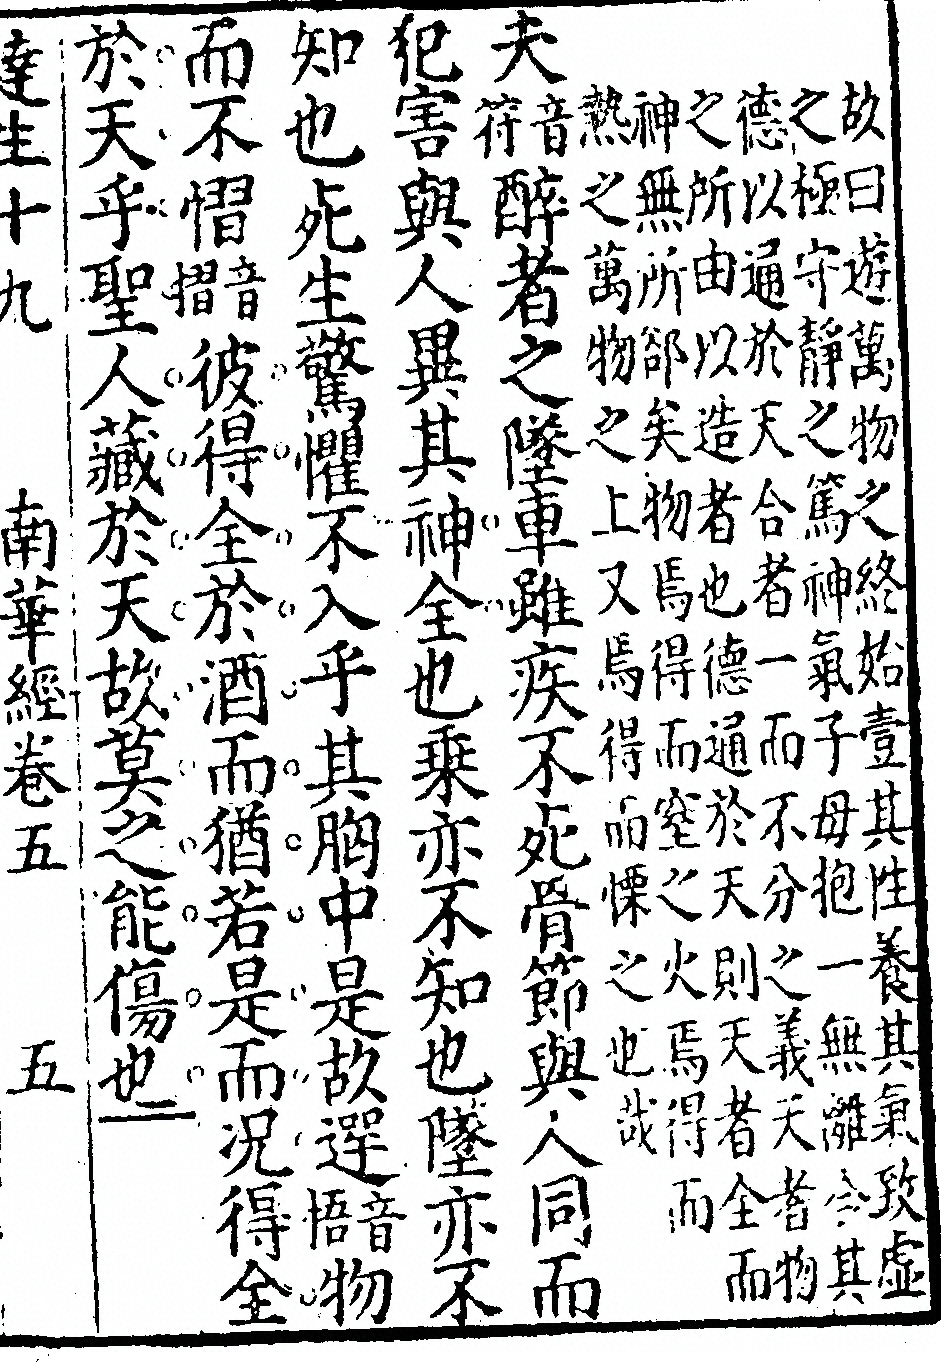 故曰遊萬物之終始壹其性養其氣致虛
之極守靜之篤神氣子母抱一無離合其
德以通於天合者一而不分之義天者物
之所由以造者也德通於天則天者全而
神無所郤矣物焉得而窒之火焉得而
熱之萬物之上又焉得而慄之也哉
夫音符醉者之墜車雖疾不死骨節與人同而
犯害與人異其神全也乘亦不知也墜亦不
知也死生驚懼不入乎其胸中是故遻音悟物
而不慴音摺彼得全於酒而猶若是而况得全
於天乎聖人藏於天故莫之能傷也
達生十九 南華經卷五 五